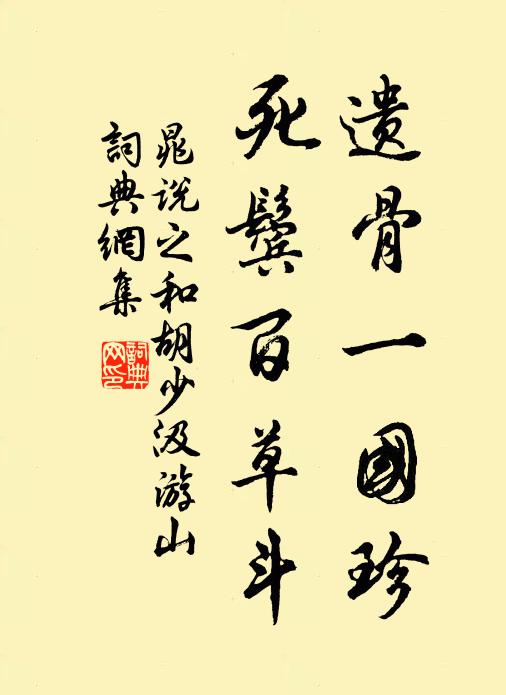 遺骨一國珍
死鬓百草斗
晁說之和胡少汲游山
詞典網集
詞典
网印